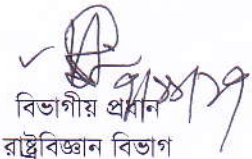 বিভাগীয় প্রধান
রাষ্ট্রবিজ্ঞান বিভাগ